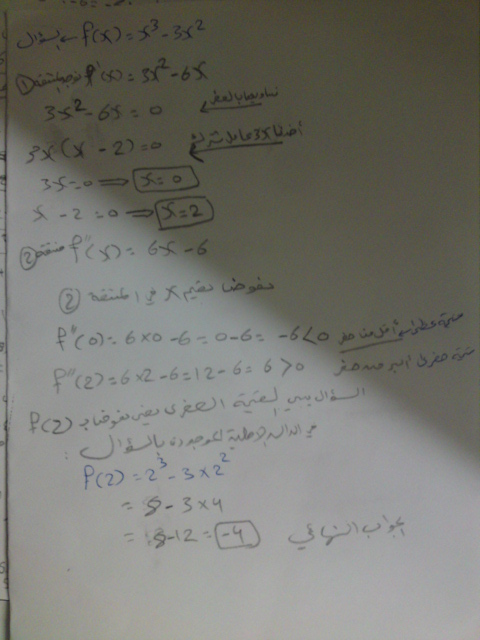 السؤال ← f(x) = x³ - 3x²
① نوجد المشتقة f'(x) = 3x² - 6x
3x² - 6x = 0 ← نساويها بالصفر
3x(x - 2) = 0 ← أخذنا 3x عامل مشترك
3x = 0 ⟹ x = 0
x - 2 = 0 ⟹ x = 2
② مشتقة f''(x) = 6x - 6
نعوض بقيم x في المشتقة ②
f''(0) = 6×0 - 6 = 0 - 6 = -6 < 0 قيمة عظمى أقل من صفر
f''(2) = 6×2 - 6 = 12 - 6 = 6 > 0 قيمة صغرى أكبر من صفر
السؤال يبي القيمة الصغرى يعني نعوض بـ f(2)
في الدالة الأصلية الموجودة بالسؤال :
f(2) = 2³ - 3×2²
= 8 - 3×4
= 8 - 12 = -4 الجواب النهائي